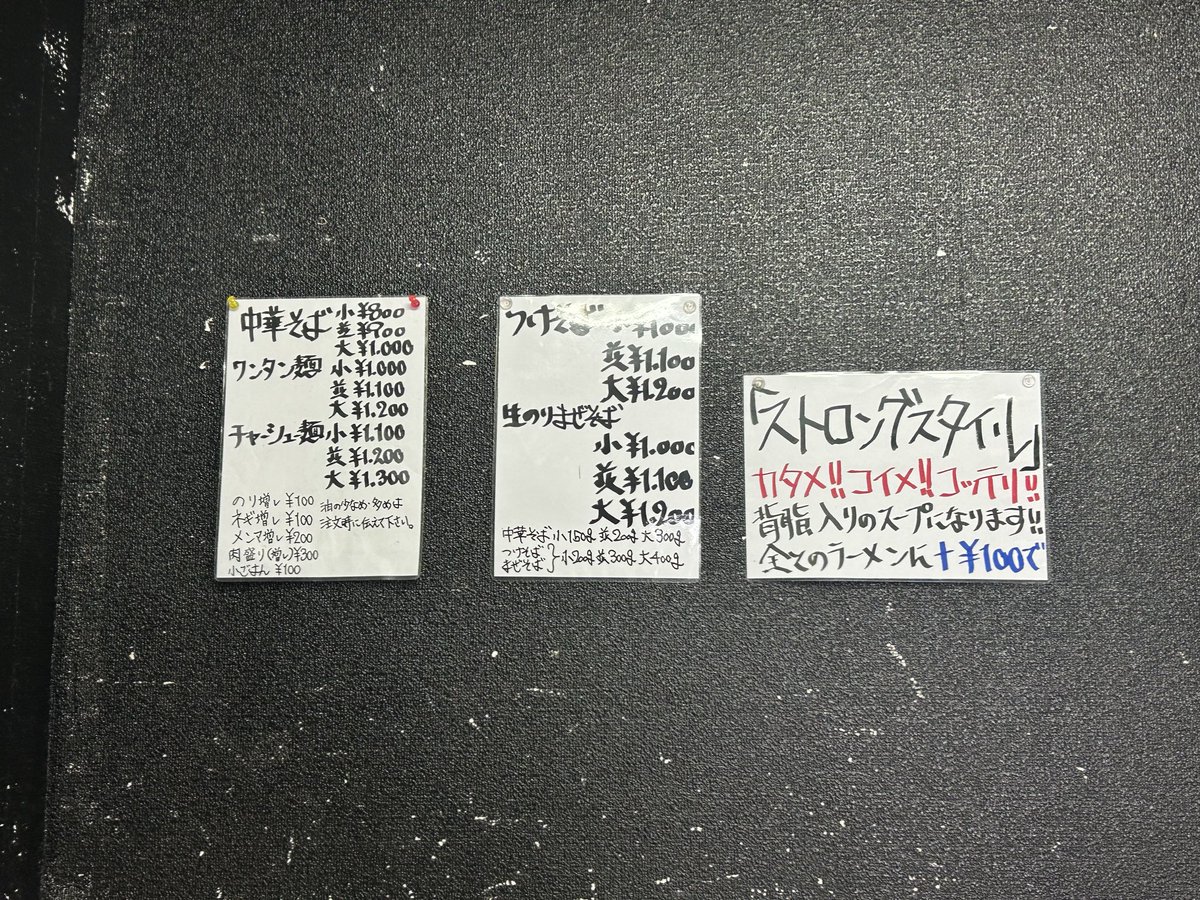 中華そば 小 ¥800
並 ¥900
大 ¥1.000
ワンタン麺 小 ¥1.000
並 ¥1.100
大 ¥1.200
チャーシュー麺 小 ¥1.100
並 ¥1.200
大 ¥1.300
のり増し ¥100
ネギ増し ¥100
メンマ増し ¥200
肉盛り(増し) ¥300
小ごはん ¥100
油の少なめ・多めは
注文時に伝えて下さい。
つけそば
並 ¥1.100
大 ¥1.200
生のりまぜそば
小 ¥1.000
並 ¥1.100
大 ¥1.200
中華そば 小150g 並200g 大300g
つけそば
まぜそば } 小200g 並300g 大400g
「ストロングスタイル」
カタメ!! コイメ!! コッテリ!!
背脂入りのスープになります!!
全てのラーメンに +¥100で